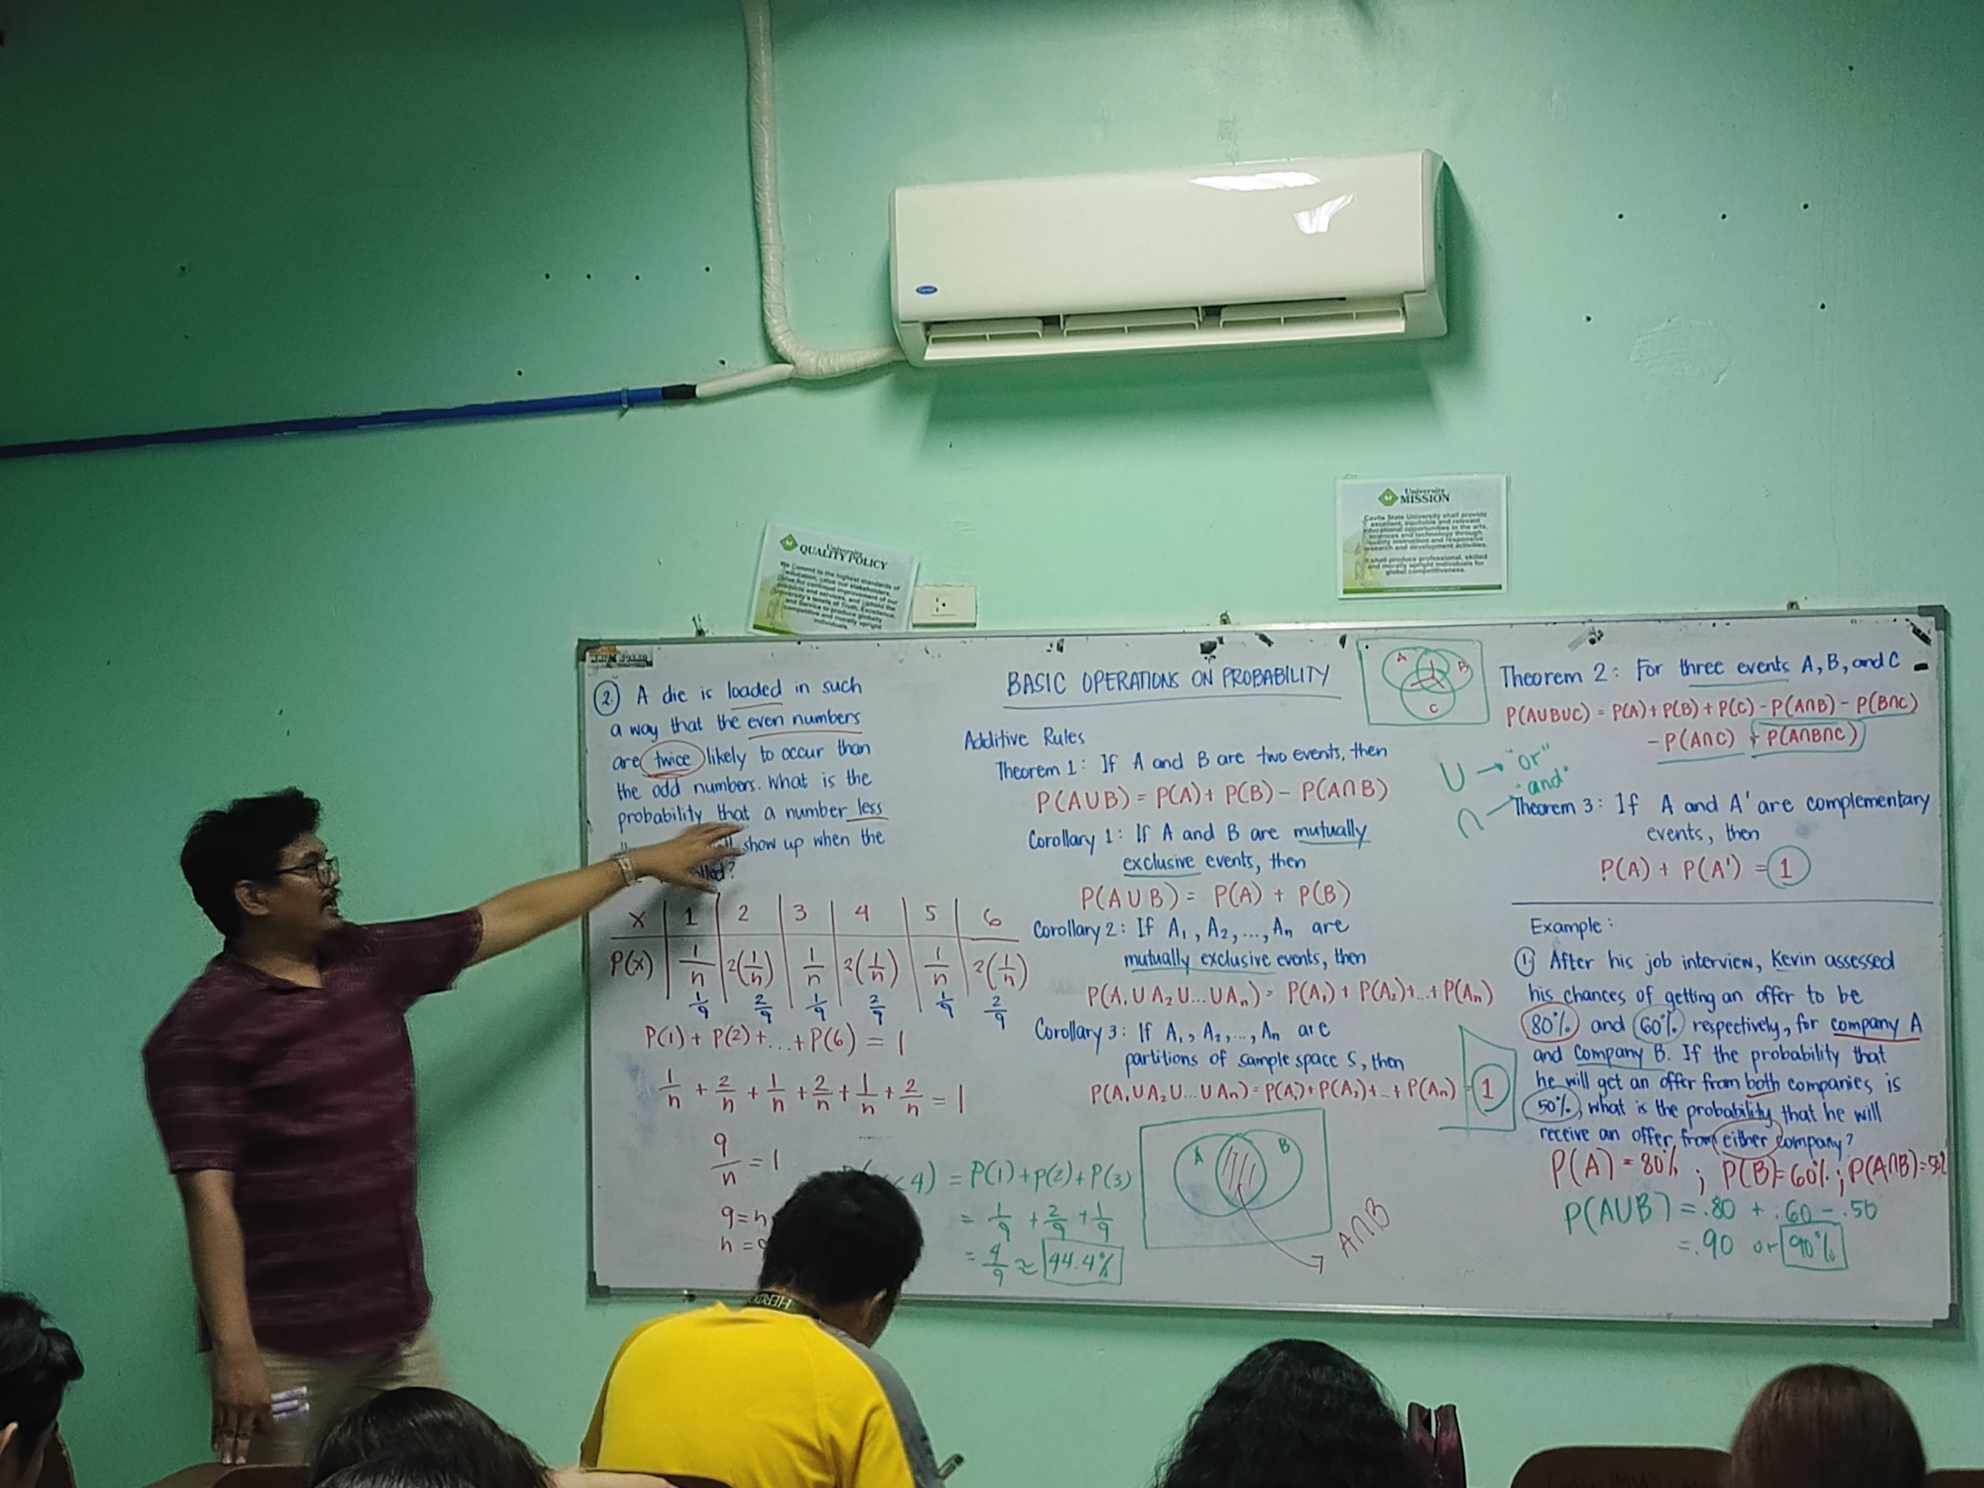 University
QUALITY POLICY
We Commit to the highest standards of
education, value our stakeholders,
strive for continual improvement of our
products and services, and uphold the
University's tenets of Truth, Excellence,
and Service to produce globally
competitive and morally upright
individuals.
University
MISSION
Cavite State University shall provide
excellent, equitable and relevant
educational opportunities in the arts,
sciences and technology through
quality instruction and responsive
research and development activities.
It shall produce professional, skilled
and morally upright individuals for
global competitiveness.
2. A die is loaded in such
a way that the even numbers
are twice likely to occur than
the odd numbers. What is the
probability that a number less
show up when the
X 1 2 3 4 5 6
P(x) 1/n 2(1/n) 1/n 2(1/n) 1/n 2(1/n)
1/9 2/9 1/9 2/9 1/9 2/9
P(1) + P(2) + ... + P(6) = 1
1/n + 2/n + 1/n + 2/n + 1/n + 2/n = 1
9/n = 1
9 = n
n =
4) = P(1) + P(2) + P(3)
= 1/9 + 2/9 + 1/9
= 4/9 ≈ 44.4%
BASIC OPERATIONS ON PROBABILITY
Additive Rules
Theorem 1: If A and B are two events, then
P(A∪B) = P(A) + P(B) - P(A∩B)
Corollary 1: If A and B are mutually
exclusive events, then
P(A∪B) = P(A) + P(B)
Corollary 2: If A₁, A₂, ..., Aₙ are
mutually exclusive events, then
P(A₁∪A₂∪...∪Aₙ) = P(A₁) + P(A₂) + ... + P(Aₙ)
Corollary 3: If A₁, A₂, ..., Aₙ are
partitions of sample space S, then
P(A₁∪A₂∪...∪Aₙ) = P(A₁) + P(A₂) + ... + P(Aₙ) = 1
A B
A∩B
A B
C
∪ → "or"
∩ → "and"
Theorem 2: For three events A, B, and C
P(A∪B∪C) = P(A) + P(B) + P(C) - P(A∩B) - P(B∩C)
- P(A∩C) + P(A∩B∩C)
Theorem 3: If A and A' are complementary
events, then
P(A) + P(A') = 1
Example:
1. After his job interview, Kevin assessed
his chances of getting an offer to be
80% and 60% respectively, for company A
and company B. If the probability that
he will get an offer from both companies is
50%, what is the probability that he will
receive an offer from either company?
P(A) = 80%; P(B) = 60%; P(A∩B) = 50%
P(A∪B) = .80 + .60 - .50
= .90 or 90%